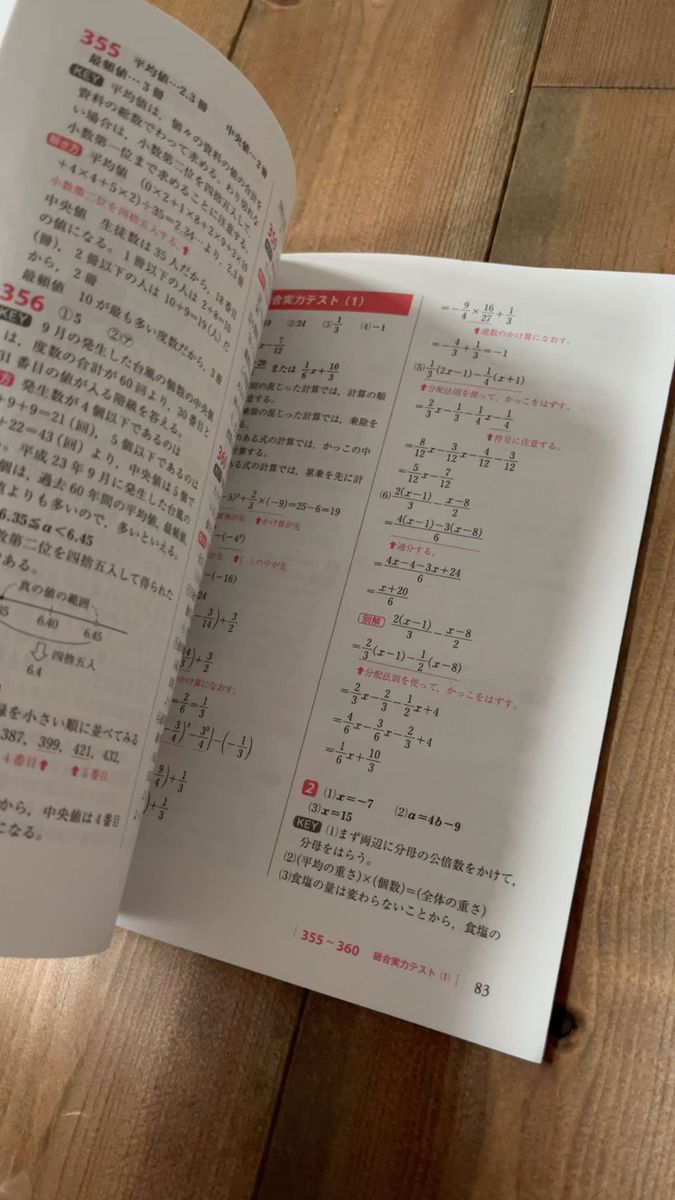 355 平均値…2.3冊 中央値…2冊
最頻値…3冊
KEY 平均値は，個々の資料の値の合計を
資料の総数でわって求める。わり切れな
い場合は，小数第二位を四捨五入して，
小数第一位まで求めることに注意する。
解き方 平均値 (0×2+1×8+2×9+3×10
+4×4+5×2)÷35=2.34…より，2.3冊
小数第二位を四捨五入する。⬆
中央値 生徒数は35人だから，18番目
の値になる。1冊以下の人は 2+8=10
(冊)，2冊以下の人は 10+9=19(人)だ
から，2冊
最頻値 10が最も多い度数だから，3冊
356 ①5 ②㋐
KEY 9月の発生した台風の個数の中央値
は，度数の合計が60回より，30番目と
31番目の値が入る階級を答える。
方 発生数が4個以下であるのは
+9+9=21(回)，5個以下であるのは
+22=43(回)より，中央値は5個で
。平成23年9月に発生した台風の
個は，過去60年間の平均値，最頻値，
直よりも多いので，多いといえる。
6.35≦a<6.45
数第二位を四捨五入して得られた
である。
真の値の範囲
35 6.40 6.45
四捨五入
6.4
録を小さい順に並べてみる
387, 399, 421, 432,
4番目⬆ ⬆5番目
から，中央値は4番目
になる。
合実力テスト(1)
19 ②24 (3)1/3 (4)-1
-7/12
+20 または 1/6x+10/3
則の混じった計算では，計算の順
意する。
乗除の混じった計算では，乗除を
る。
のある式の計算では，かっこの中
算する。
ある式の計算では，累乗を先に計
-5)²+2/3×(-9)=25-6=19
⬆かけ算が先
-(-4²)
が先 ⬆( )の中が先
-(-16)
24
-3/14)+3/2
4/3)+3/2
かけ算になおす。
=2/6=1/3
-3/4)²-3²/4}-(-1/3)
9/4)+1/3
)+1/3
=-9/4×16/27+1/3
⬆逆数のかけ算になおす。
=-4/3+1/3=-1
(5)1/3(2x-1)-1/4(x+1)
⬆分配法則を使って，かっこをはずす。
=2/3x-1/3-1/4x-1/4
⬆符号に注意する。
=8/12x-3/12x-4/12-3/12
=5/12x-7/12
(6)2(x-1)/3-x-8/2
=4(x-1)-3(x-8)/6
⬆通分する。
=4x-4-3x+24/6
=x+20/6
別解 2(x-1)/3-x-8/2
=2/3(x-1)-1/2(x-8)
⬆分配法則を使って，かっこをはずす。
=2/3x-2/3-1/2x+4
=4/6x-3/6x-2/3+4
=1/6x+10/3
2 (1)x=-7 (2)a=4b-9
(3)x=15
KEY (1)まず両辺に分母の公倍数をかけて，
分母をはらう。
(2)(平均の重さ)×(個数)=(全体の重さ)
(3)食塩の量は変わらないことから，食塩の
355～360 総合実力テスト(1) 83